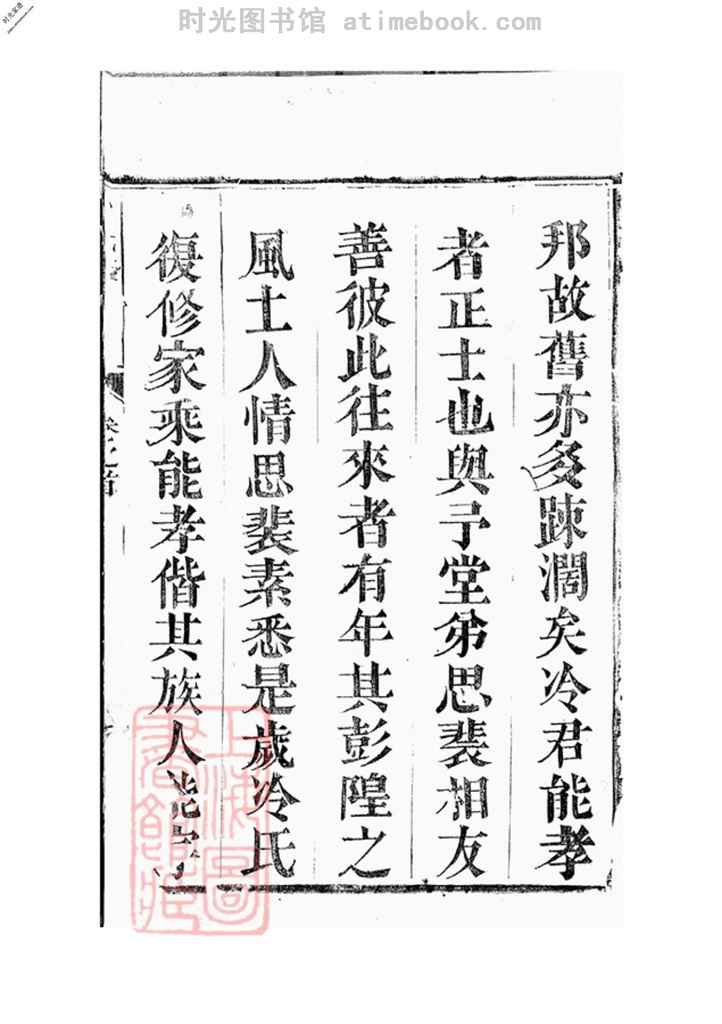 时光图书馆 atimebook.com
邦故舊亦多踈濶矣冷君能孝
者正士也與予堂弟思裴相友
善彼此往來者有年其彭隍之
風土人情思裴素悉是歲冷氏
復修家乘能孝偕其族人
卷之首
上海圖書館藏